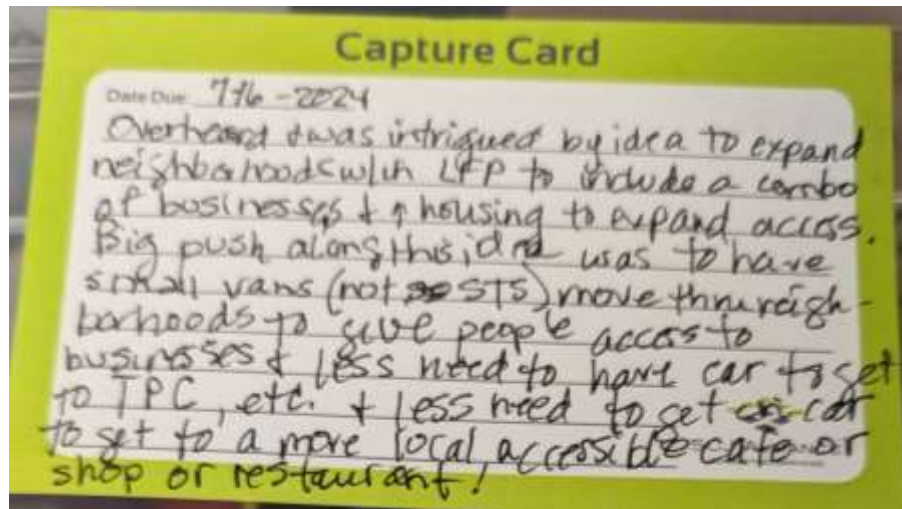 Capture Card
Date Due: 7/16-2024
Overheard & was intrigued by idea to expand
neighborhoods w/in LFP to include a combo
of businesses & ↑ housing to expand access.
Big push along this idea was to have
small vans (not STS) move thru neigh-
borhoods to give people access to
businesses & less need to have car to get
to TPC, etc. & less need to get car
to get to a more local, accessible cafe or
shop or restaurant!